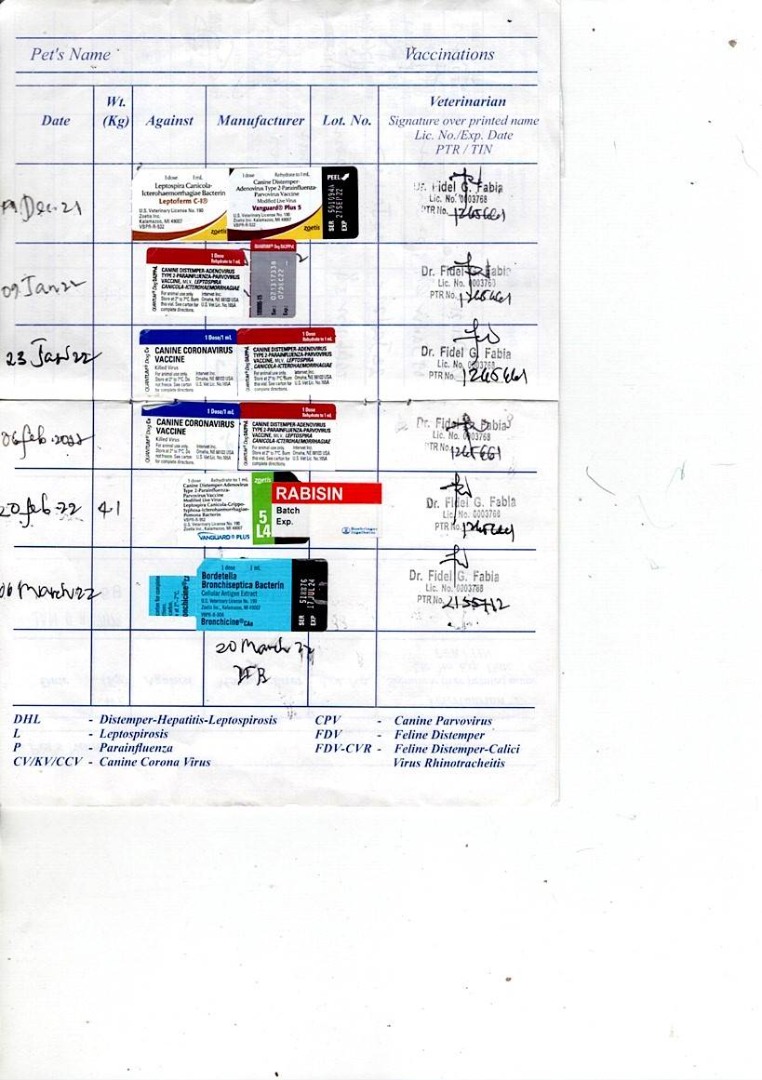 Pet's Name Vaccinations
Date Wt. (Kg) Against Manufacturer Lot. No. Veterinarian
Signature over printed name
Lic. No./Exp. Date
PTR / TIN
Dec-21
1 dose 1 mL
Leptospira Canicola-
Icterohaemorrhagiae Bacterin
Leptoferm C-I®
U.S. Veterinary License No. 190
Zoetis Inc.
Kalamazoo, MI 49007
VBPR-R-522
zoetis
1 dose Rehydrate to 1 mL
Canine Distemper-
Adenovirus Type 2-Parainfluenza-
Parvovirus Vaccine
Modified Live Virus
Vanguard® Plus 5
U.S. Veterinary License No. 190
Zoetis Inc.
Kalamazoo, MI 49007
zoetis
PEEL
SER
EXP 27SEP22
Dr. Fidel G. Fabia
Lic. No. 0003768
PTR No. 1265661
09 Jan 22
1 Dose
Rehydrate to 1 mL
CANINE DISTEMPER-ADENOVIRUS
TYPE 2-PARAINFLUENZA-PARVOVIRUS
VACCINE, MLV, LEPTOSPIRA
CANICOLA-ICTEROHAEMORRHAGIAE
For animal use only.
Store at 2° to 7°C.
Omaha, NE 68103 USA
complete directions.
Dr. Fidel G. Fabia
Lic. No. 0003768
PTR No. 1265661
23 Jan 22
1 Dose/1 mL
CANINE CORONAVIRUS
VACCINE
Killed Virus
For animal use only.
1 Dose
Rehydrate to 1 mL
CANINE DISTEMPER-ADENOVIRUS
TYPE 2-PARAINFLUENZA-PARVOVIRUS
VACCINE, MLV, LEPTOSPIRA
CANICOLA-ICTEROHAEMORRHAGIAE
Dr. Fidel G. Fabia
Lic. No. 0003768
PTR No. 1265661
06 feb. 2022
1 Dose/1 mL
CANINE CORONAVIRUS
VACCINE
Killed Virus
For animal use only.
1 Dose
Rehydrate to 1 mL
CANINE DISTEMPER-ADENOVIRUS
TYPE 2-PARAINFLUENZA-PARVOVIRUS
VACCINE, MLV, LEPTOSPIRA
CANICOLA-ICTEROHAEMORRHAGIAE
Dr. Fidel G. Fabia
Lic. No. 0003768
PTR No. 1265661
20 feb 22
1 dose Rehydrate to 1 mL
Canine Distemper-Adenovirus
Type 2-Parainfluenza-
Parvovirus Vaccine
Modified Live Virus
Leptospira Canicola-Grippo-
typhosa-Icterohaemorrhagiae-
Pomona Bacterin
VANGUARD® PLUS
zoetis
5
L4
RABISIN
Batch
Exp.
Boehringer
Ingelheim
Dr. Fidel G. Fabia
Lic. No. 0003768
PTR No. 1265661
06 March 22
1 dose 1 mL
Bordetella
Bronchiseptica Bacterin
Cellular Antigen Extract
U.S. Veterinary License No. 190
Zoetis Inc., Kalamazoo, MI 49007
Bronchicine® CAe
SER
EXP 17JUL24
Dr. Fidel G. Fabia
Lic. No. 0003768
PTR No. 2155712
20 March 22
DHL - Distemper-Hepatitis-Leptospirosis CPV - Canine Parvovirus
L - Leptospirosis FDV - Feline Distemper
P - Parainfluenza FDV-CVR - Feline Distemper-Calici
CV/KV/CCV - Canine Corona Virus Virus Rhinotracheitis